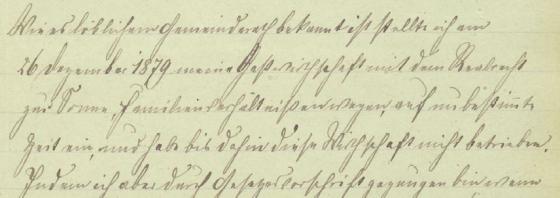 Wie es löblichem Gemeinderath bekannt ist stellte ich am
26 Dezember 1879 meine Gastwirthschaft mit dem Realrecht
zur Sonne, Familienverhältnissen wegen, auf unbestimmte
Zeit ein, und habe bis dahin diese Wirthschaft nicht betrieben.
Indem ich aber durch Gesetzesvorschrift gezwungen bin wenn